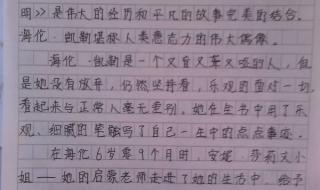 明》是伟大的经历和平凡的故事完美的结合。
海伦·凯勒堪称人类意志力的伟大偶像。
海伦·凯勒是一个又盲又聋又哑的人,但
是她没有放弃,仍然坚持着,乐观的面对一切,
看起来与正常人毫无差别。她在生书中用了乐
观、细腻的笔触写了自己一生中的点点事迹。
在海伦6岁零9个月时,安妮·莎莉文小
姐——她的启蒙老师走进了她的生活中,给予